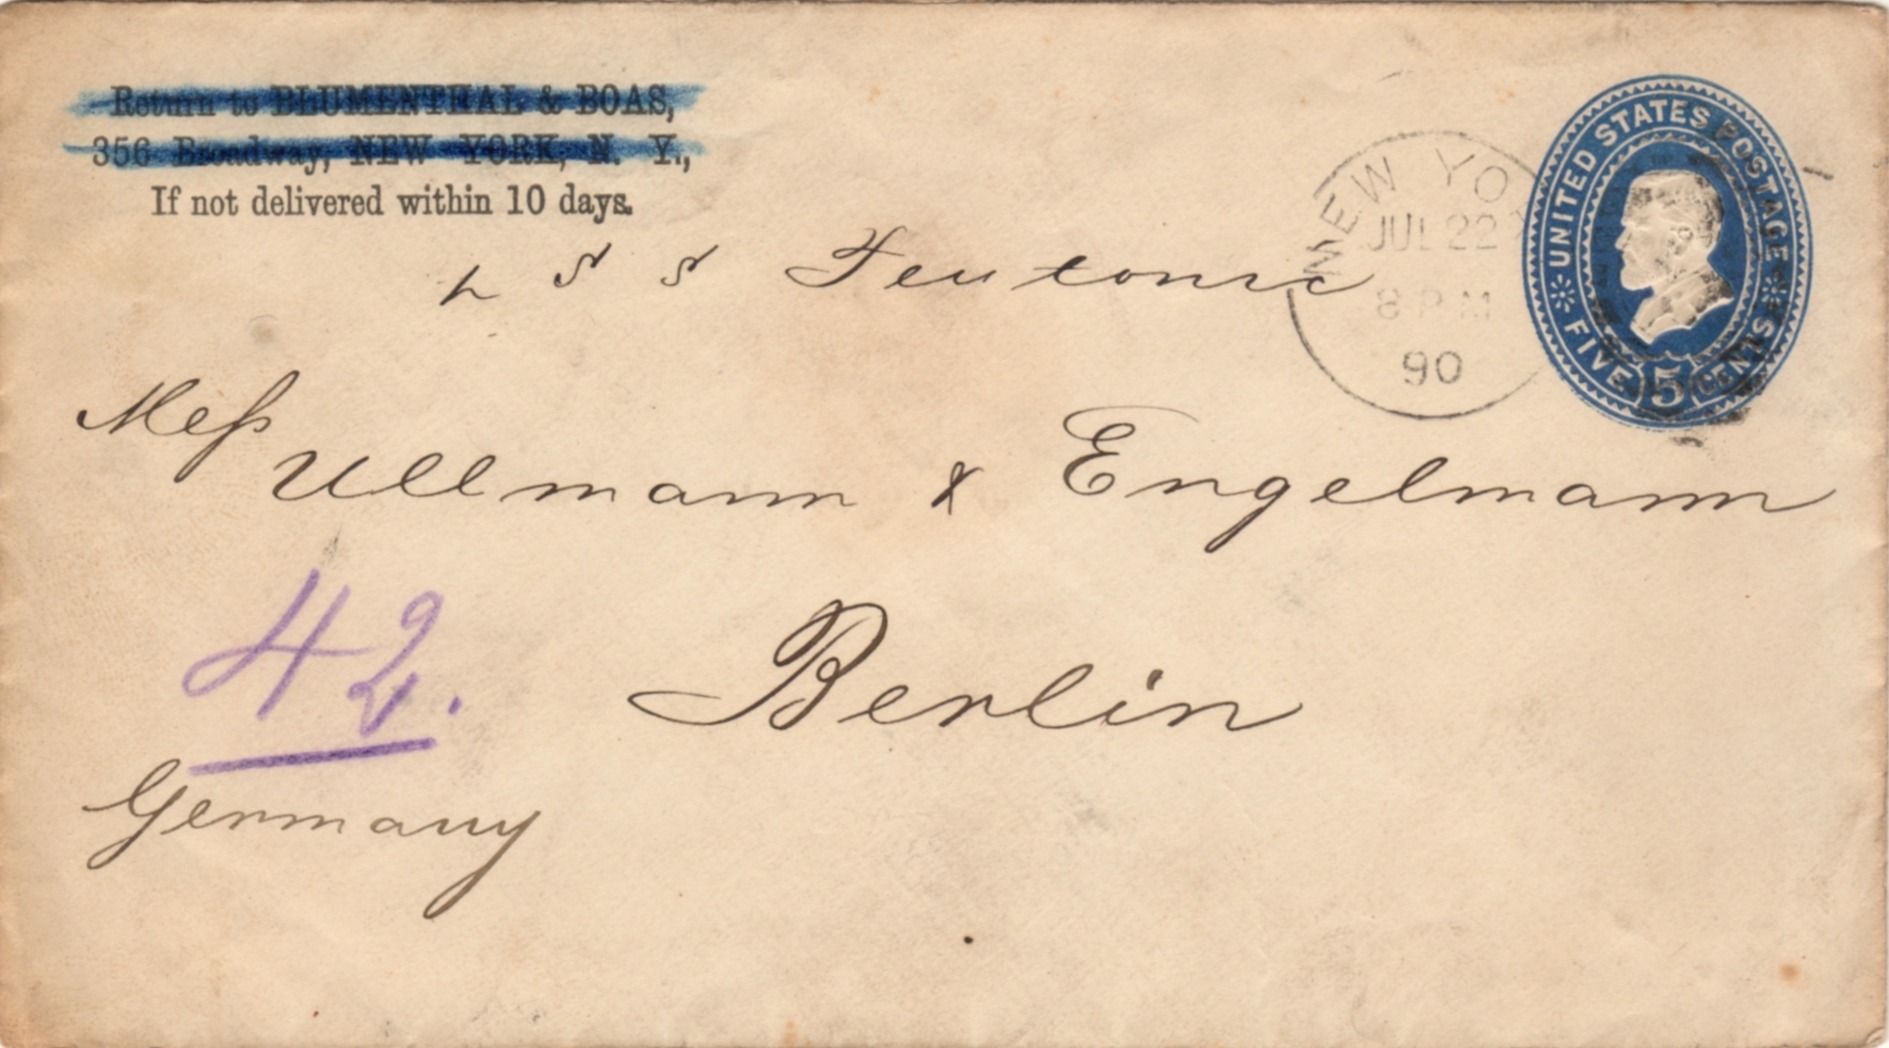 Return to BLUMENTHAL & BOAS,
356 Broadway, NEW YORK, N. Y.,
If not delivered within 10 days.
NEW YO
JUL 22
8 PM
90
UNITED STATES POSTAGE
FIVE 5 CENTS
S S Teutonic
Mess
Ullmann & Engelmann
42.
Berlin
Germany